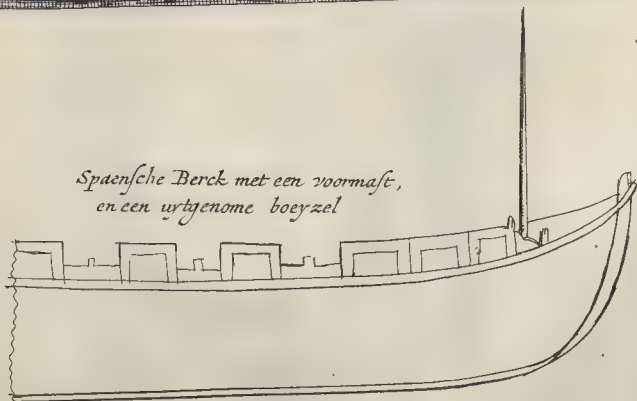 Spaensche Berck met een voormast,
en een uytgenome boeyzel